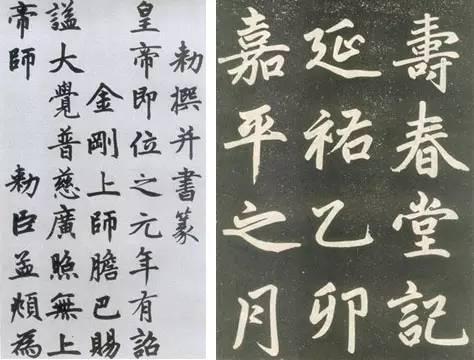 勅撰并書篆
皇帝即位之元年有詔
金剛上師膽巴賜
謚大覺普慈廣照無上
帝師 勅臣孟頫為
壽春堂記
延祐乙卯
嘉平之月